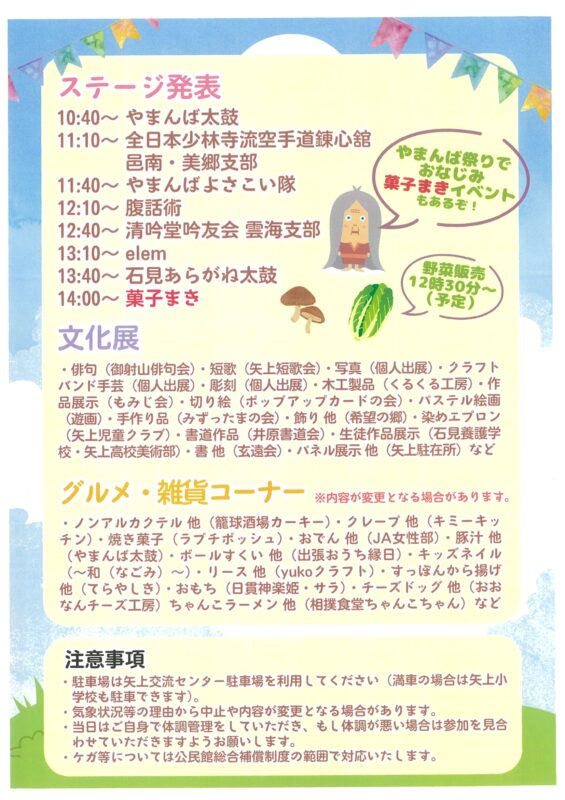 ステージ発表
10:40～ やまんば太鼓
11:10～ 全日本少林寺流空手道錬心舘
邑南・美郷支部
11:40～ やまんばよさこい隊
12:10～ 腹話術
12:40～ 清吟堂吟友会 雲海支部
13:10～ elem
13:40～ 石見あらがね太鼓
14:00～ 菓子まき
やまんば祭りで
おなじみ
菓子まきイベント
もあるぞ！
野菜販売
12時30分～
（予定）
文化展
・俳句（御射山俳句会）・短歌（矢上短歌会）・写真（個人出展）・クラフト
バンド手芸（個人出展）・彫刻（個人出展）・木工製品（くるくる工房）・作
品展示（もみじ会）・切り絵（ポップアップカードの会）・パステル絵画
（遊画）・手作り品（みずったまの会）・飾り 他（希望の郷）・染めエプロン
（矢上児童クラブ）・書道作品（井原書道会）・生徒作品展示（石見養護学
校・矢上高校美術部）・書 他（玄遠会）・パネル展示 他（矢上駐在所）など
グルメ・雑貨コーナー ※内容が変更となる場合があります。
・ノンアルカクテル 他（籠球酒場カーキー）・クレープ 他（キミーキッ
チン）・焼き菓子（ラプチポッシュ）・おでん 他（JA女性部）・豚汁 他
（やまんば太鼓）・ボールすくい 他（出張おうち縁日）・キッズネイル
（～和（なごみ）～）・リース 他（yukoクラフト）・すっぽんから揚げ
他（てらやしき）・おもち（日貫神楽姫・サラ）・チーズドッグ 他（おお
なんチーズ工房）ちゃんこラーメン 他（相撲食堂ちゃんこちゃん）など
注意事項
・駐車場は矢上交流センター駐車場を利用してください（満車の場合は矢上小
学校も駐車できます）。
・気象状況等の理由から中止や内容が変更となる場合があります。
・当日はご自身で体調管理をしていただき、もし体調が悪い場合は参加を見合
わせていただきますようお願いします。
・ケガ等については公民館総合補償制度の範囲で対応いたします。